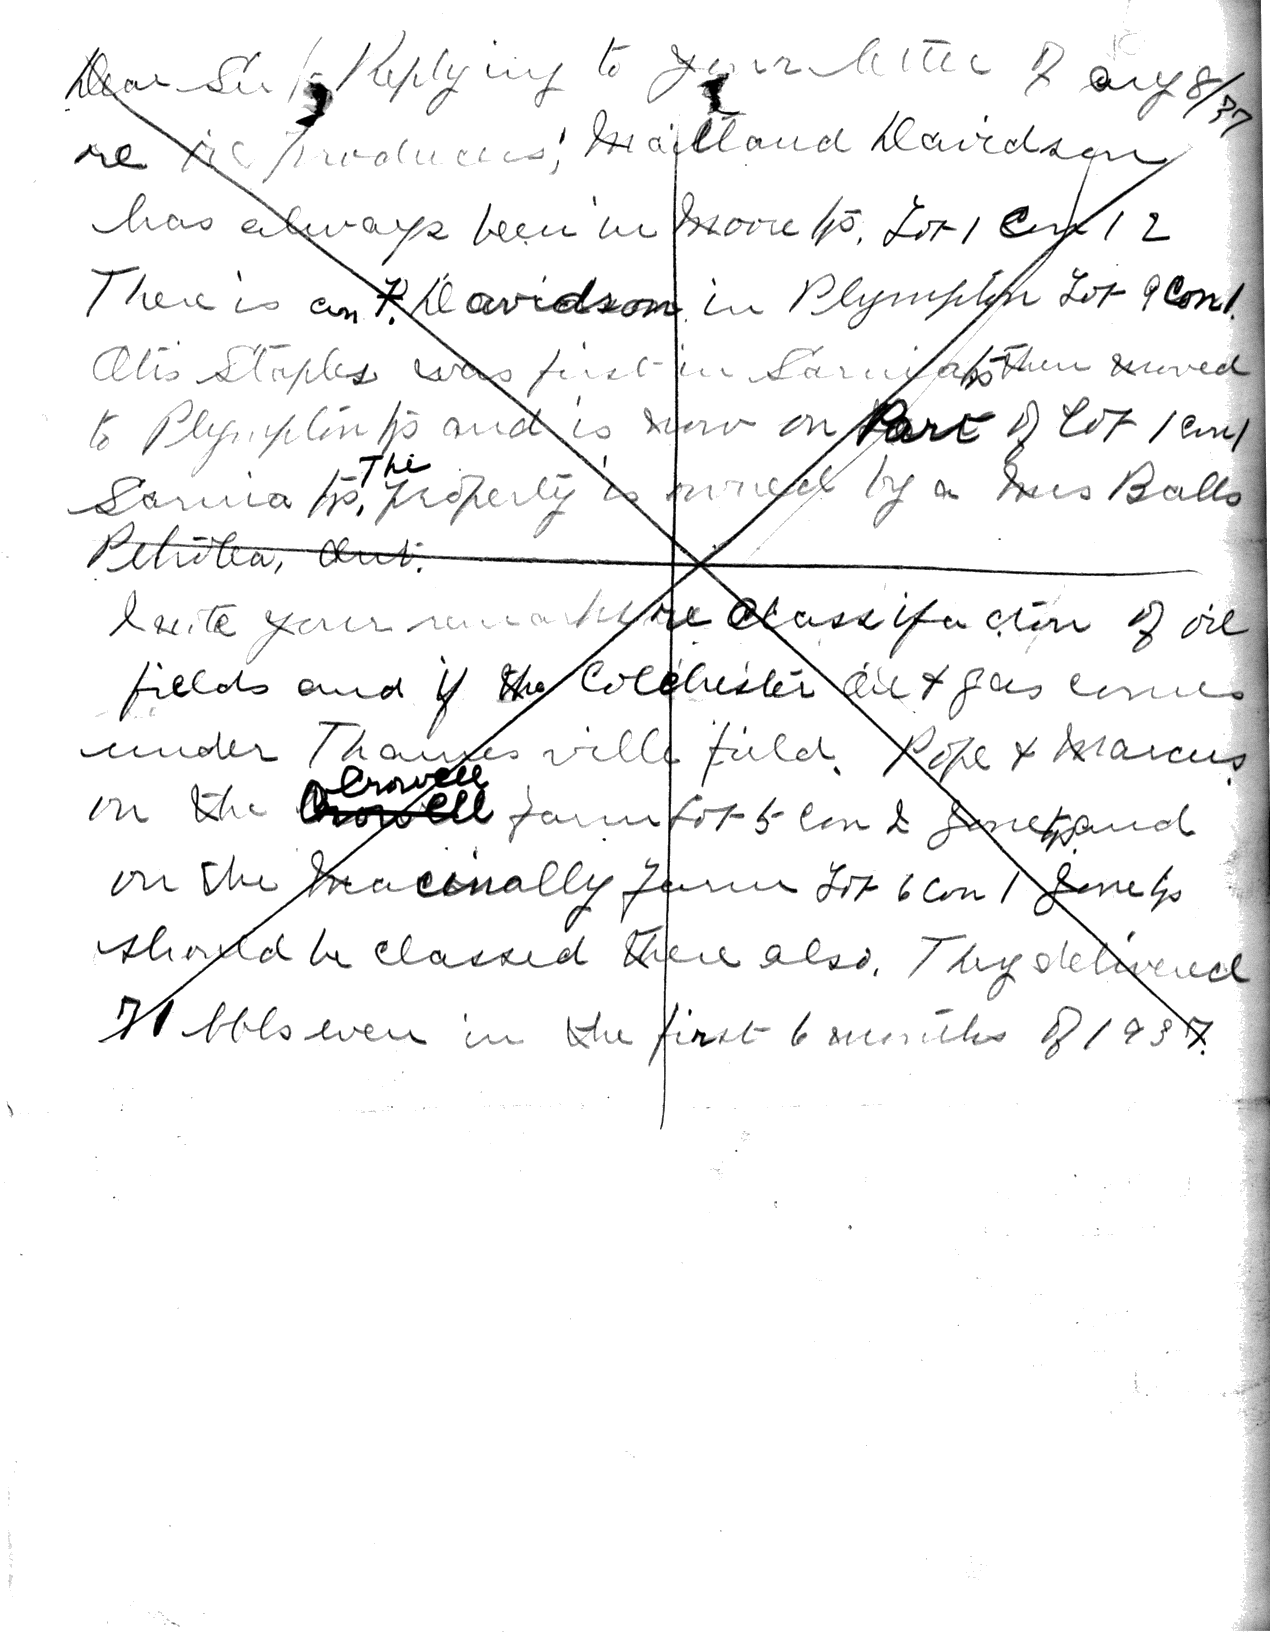 Dear Sir:- Replying to your letter of aug 8/37
re oil producers; Maitland Davidson
has always been in Moore tp. Lot 1 Con 12
There is an F. Davidson in Plympton Lot 9 Con 1.
Otis Staples was first in Sarnia tp then moved
to Plympton tp and is now on Part of Lot 1 Con 1
Sarnia tp. The property is owned by a Mrs Balls
Petrolea, Ont.
I note your remarks re classifaction of oil
fields and if the Colchester oil & gas comes
under Thamesville field. Pope & Marcus
on the Crowell farm Lot 5 Con 2 Zone tp and
on the farm Lot 6 Con 1 Zone tp
should be classed there also. They delivered
71 bbls even in the first 6 months of 1937.